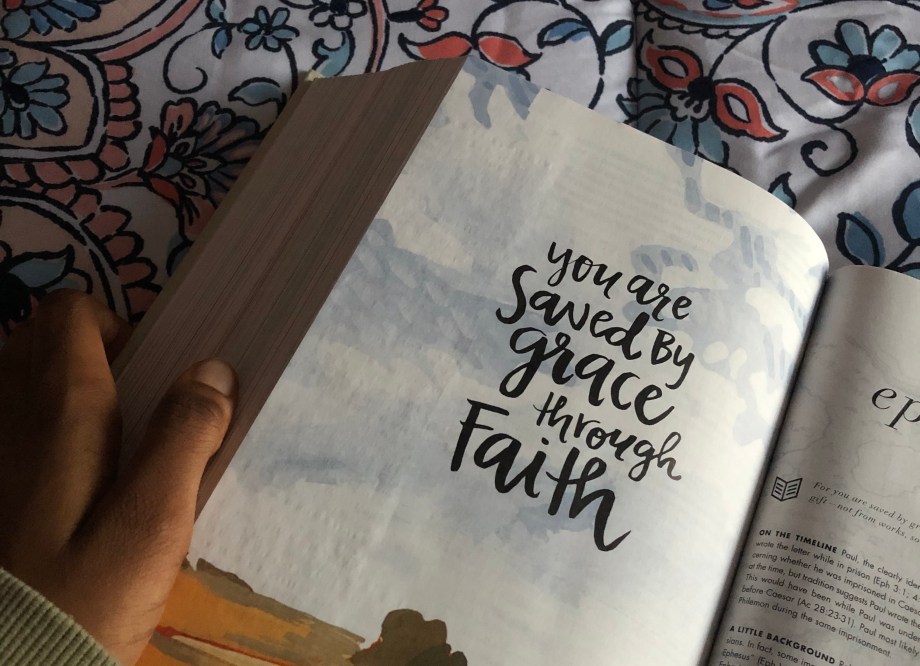 you are
Saved By
grace
through
Faith
ep
For you are saved by gr
gift—not from works, so
ON THE TIMELINE Paul, the clearly ide
wrote the letter while in prison (Eph 3:1; 4
cerning whether he was imprisoned in Caes
at the time, but tradition suggests Paul wrote the
This would have been while Paul was under
before Caesar (Ac 28:23-31). Paul most likely
Philemon during the same imprisonment.
A LITTLE BACKGROUND
sians. In fact, some im
Ephesus" (Eph 1